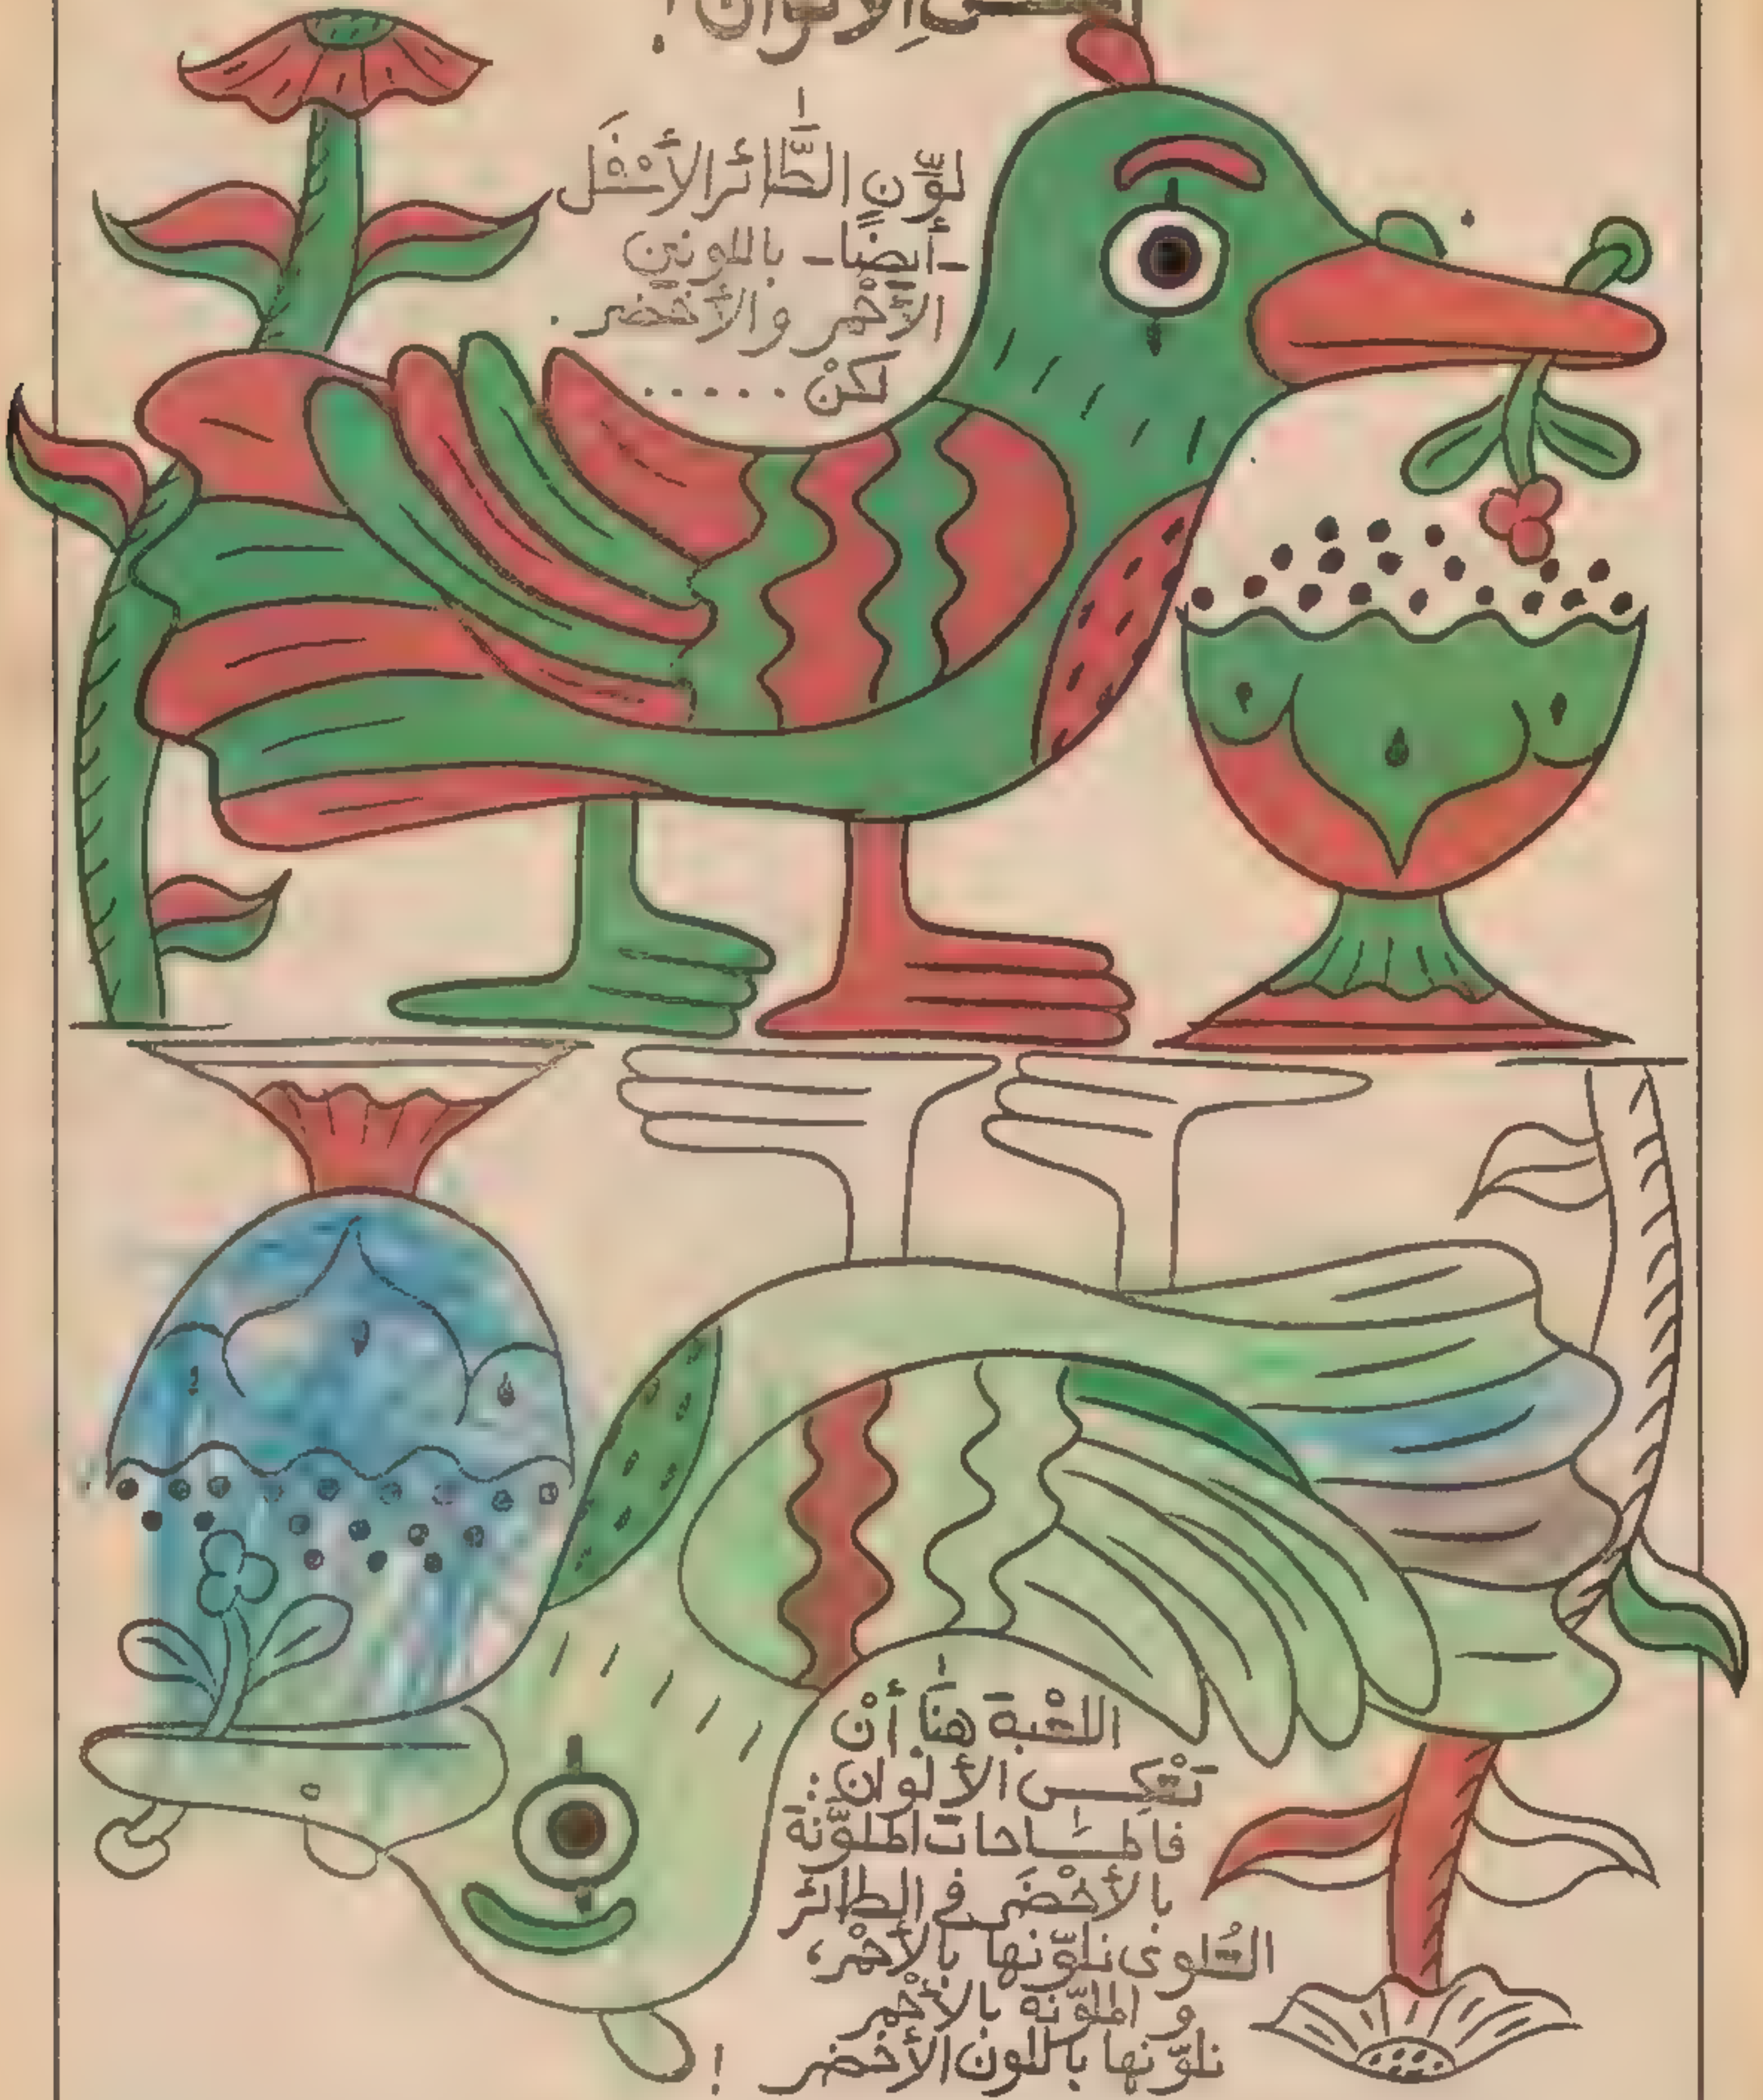 الألوان !
لوّن الطَّائر الأسْفَل
-أيضًا- باللونين
الأحْمر والأخضر .
لكنْ . . . . .
اللعْبة هنَا أنْ
تنْعكِس الألوان :
فالمساحات الملوَّنة
بالأخْضَر في الطائر
العُلوى نلوّنها بالأحْمر،
و الملوّنة بالأحْمر
نلوّنها باللون الأخضر !